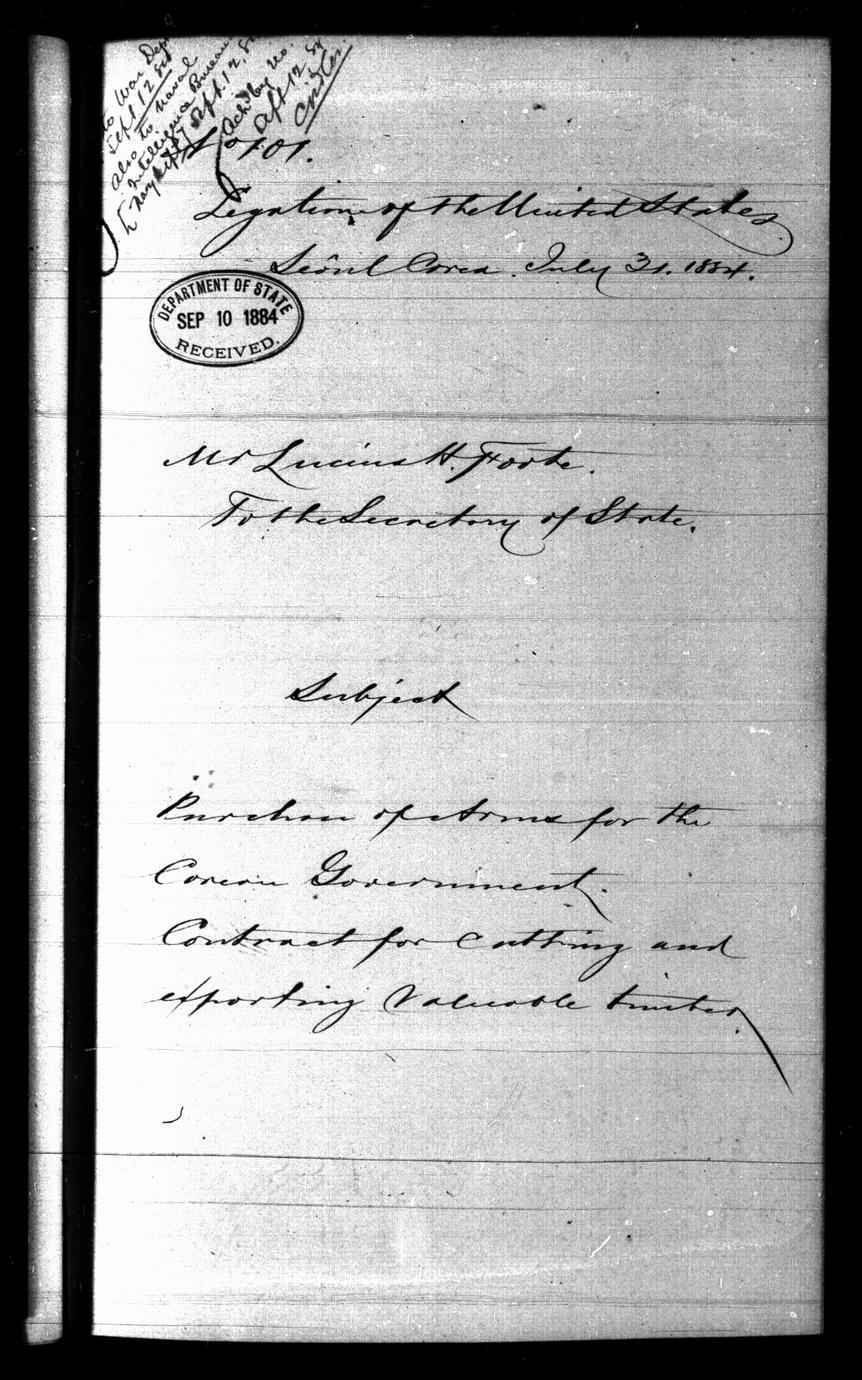 to War Dept
Sept 12 84
also to Naval
Intelligence Bureau
Navy Sept. 12, 84
Ack'd by no.
Sept 12 84
No 101.
Legation of the United States
Seoul Corea. July 31. 1884.
DEPARTMENT OF STATE
SEP 10 1884
RECEIVED.
Mr Lucius H. Foote.
To the Secretary of State.
Subject
Purchase of Arms for the
Corean Government.
Contract for Cutting and
exporting Valuable timber.